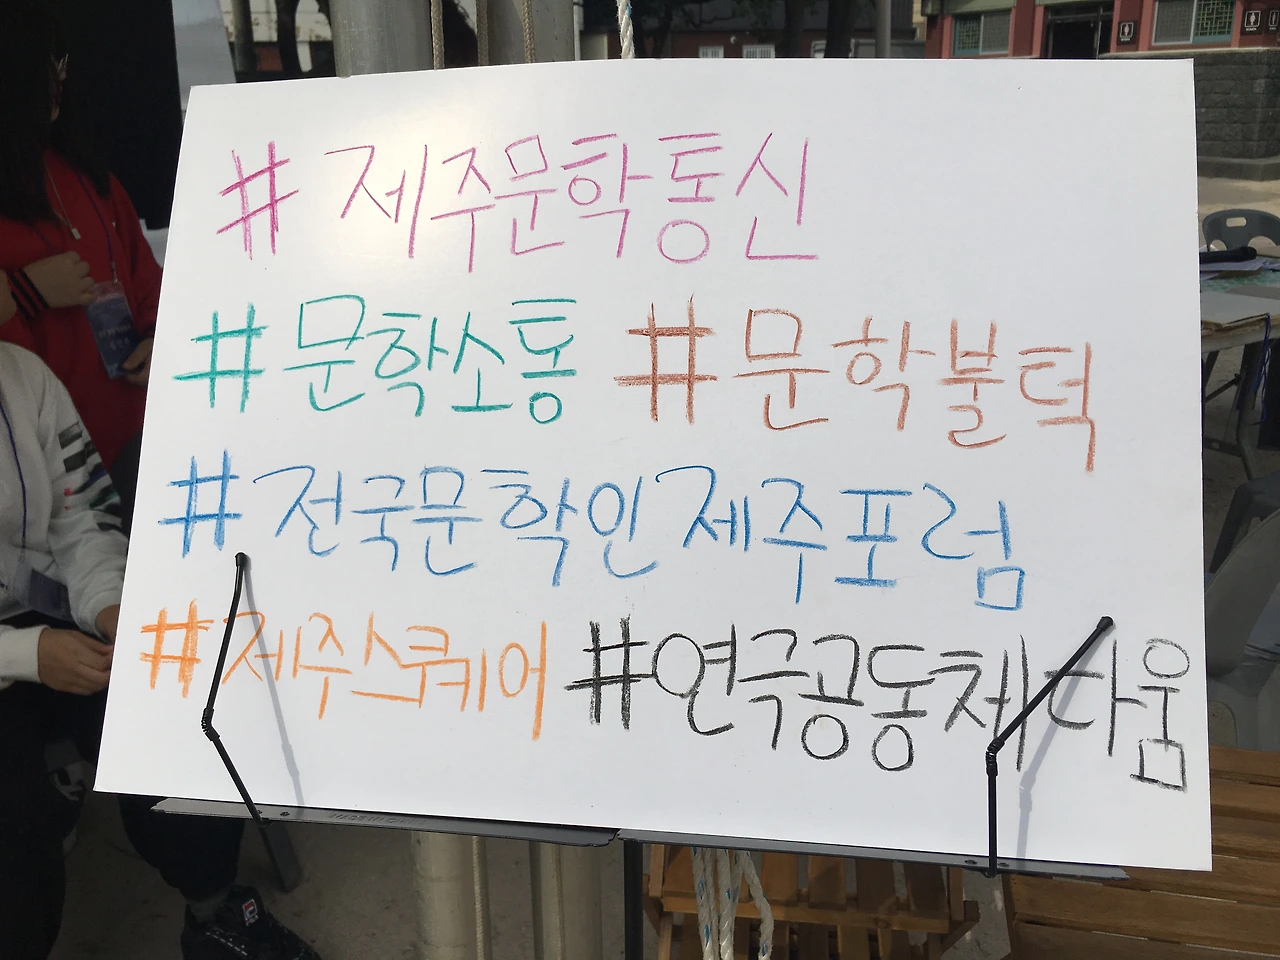 #제주문학통신
#문학소통 #문학불턱
#전국문학인 제주포럼
#제주스퀘어 #연극공동체다움